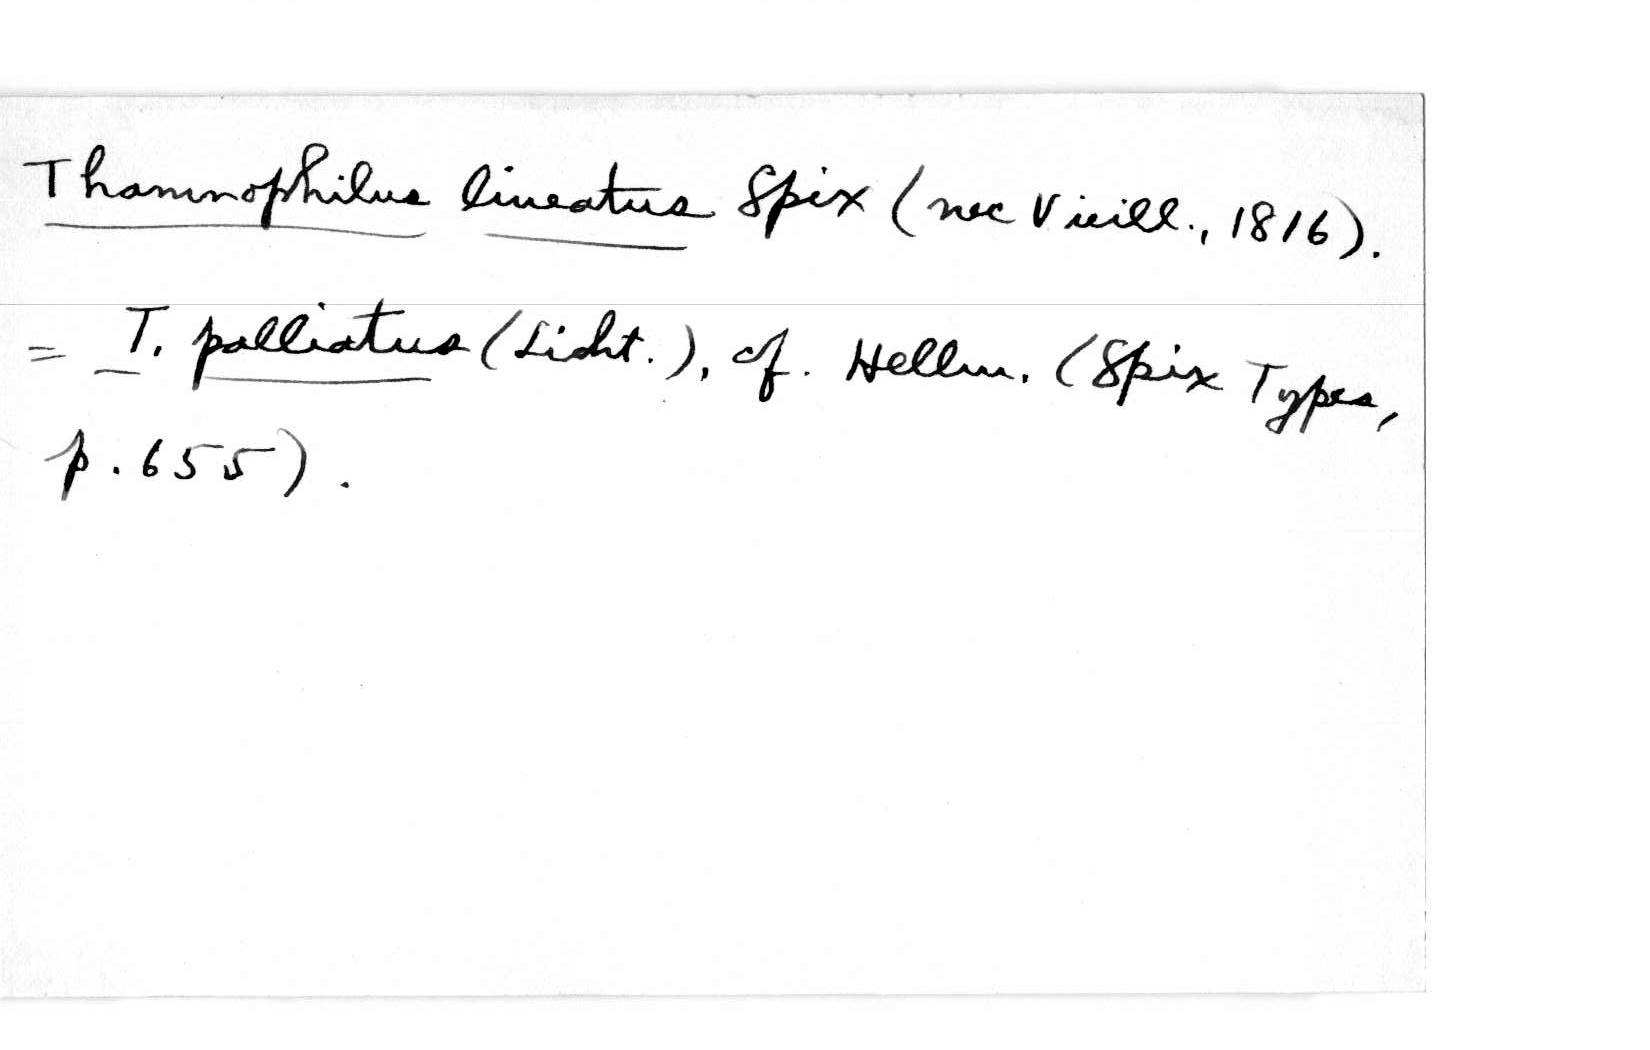 Thamnophilus lineatus Spix (nec Vieill., 1816).
= T. palliatus (Licht.), cf. Hellm. (Spix Types,
p. 655).